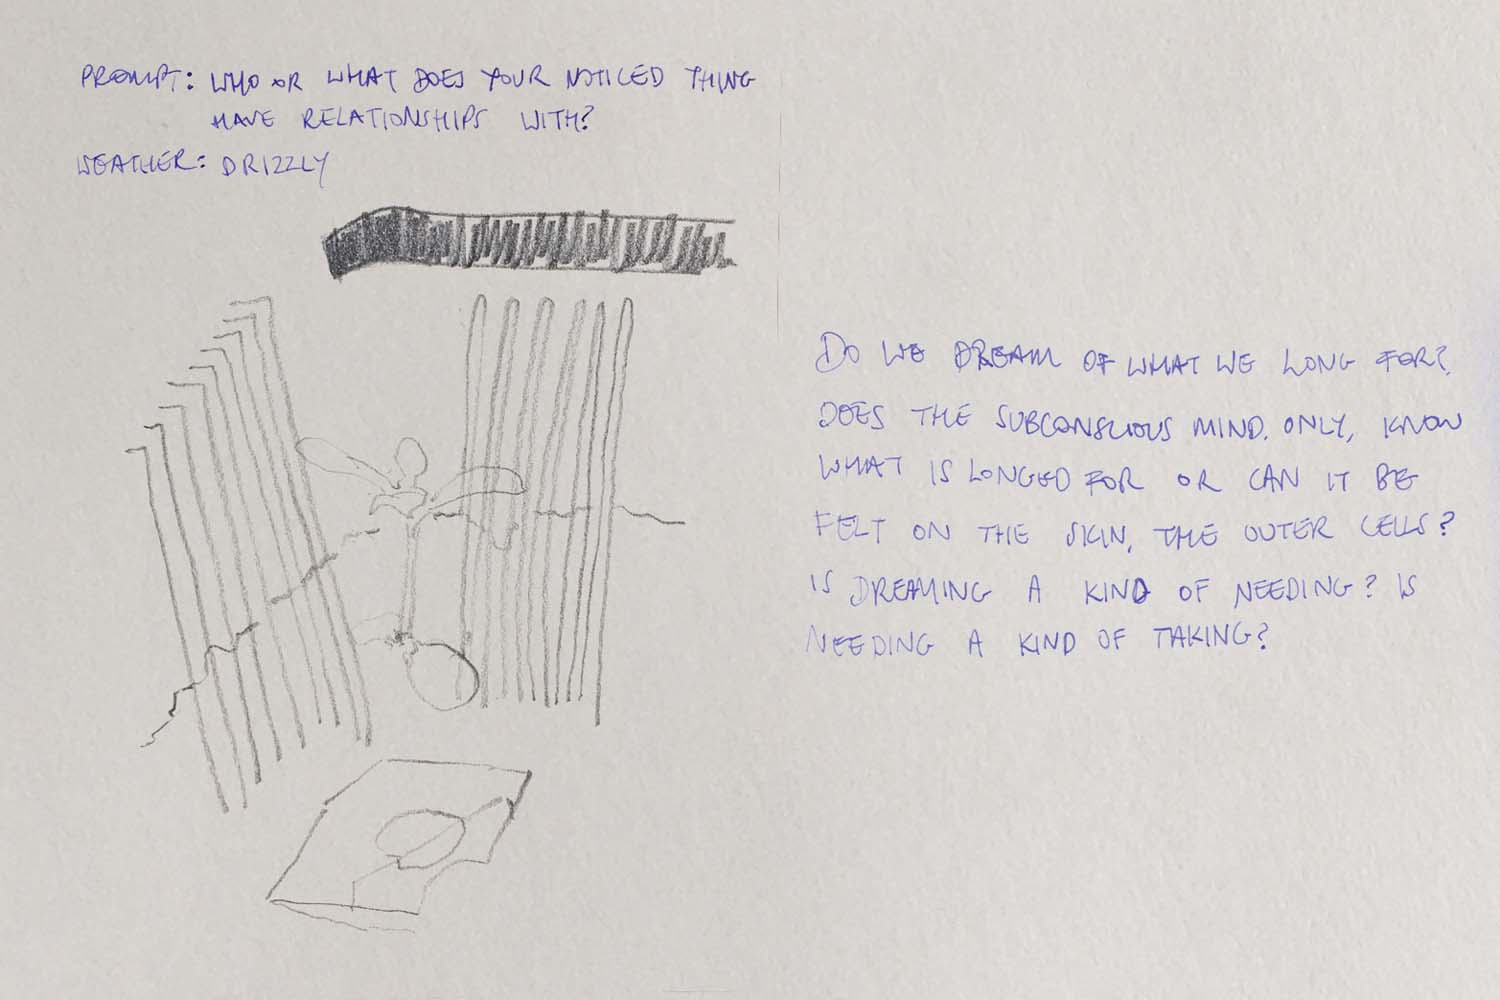 PROMPT: WHO OR WHAT DOES YOUR NOTICED THING
HAVE RELATIONSHIPS WITH?
WEATHER: DRIZZLY
DO WE DREAM OF WHAT WE LONG FOR?
DOES THE SUBCONSCIOUS MIND, ONLY, KNOW
WHAT IS LONGED FOR OR CAN IT BE
FELT ON THE SKIN, THE OUTER CELLS?
IS DREAMING A KIND OF NEEDING? IS
NEEDING A KIND OF TAKING?